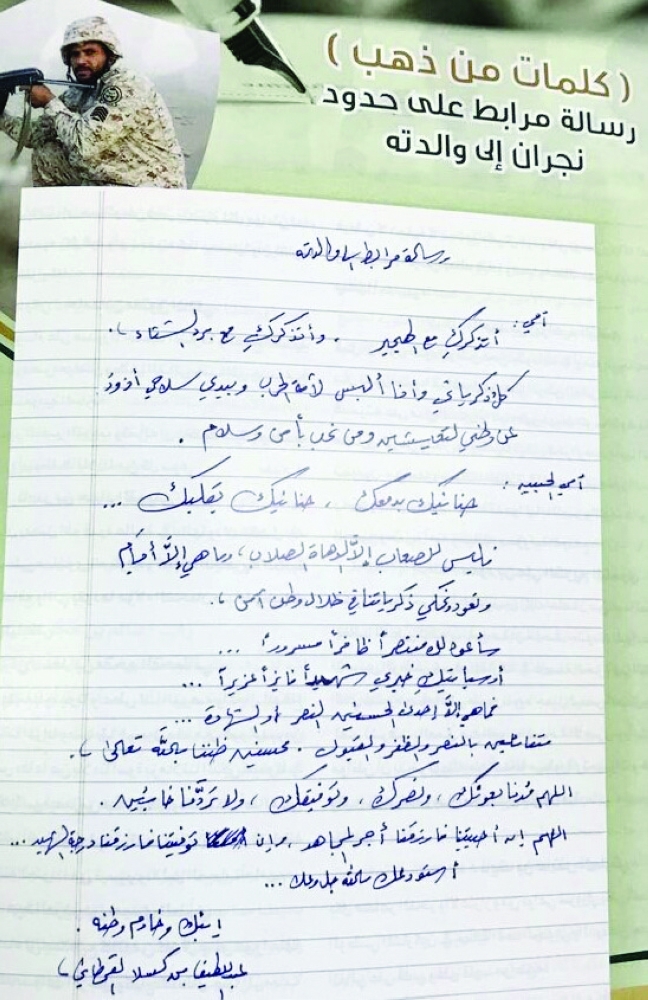 ( كلمات من ذهب )
رسالة مرابط على حدود
نجران إلى والدته
رسالة مرابط إلى والدته
أمي:
أتذكركِ مع الهجير . وأتذكركِ مع برد الشتاء .
كل ذكرياتي وأنا ألبس لأمة الحرب وبيدي سلاحي أذود
عن وطني لتعيشين ومن نحب بأمن وسلام .
أمي الحبيبه :
حنانيك بدمعك ، حنانيك بقلبك ...
فليس للصعاب إلاَّ الصلاب ، وما هي إلاَّ أيام
ونعود ونحكي ذكرياتنا في ظلال وطن آمن .
سأعود لك منتصراً ظافراً مسروراً ...
أو سيأتيكِ خبري شهيداً عزيزاً ...
فما هي إلاَّ إحدى الحسنيين النصر أو الشهادة ...
متفائلين بالنصر والظفر والقبول . محسنين ظننا بالله تعالى .
اللهم مُدنا بعونك ، ونصرك ، وتوفيقك ، ولا تردَّنا خائبين .
اللهم إن أحييتنا فارزقنا أجر المجاهد ، وإن توفيتنا فارزقنا درجة الشهيد ...
أستودعك الله جل وعلا ...
إبنك وخادم وطنه .
عبداللطيف بن القحطاني